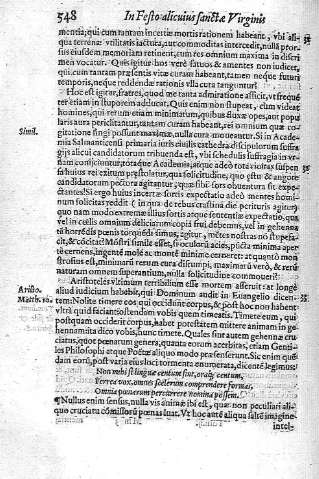 548 In Festo alicuius sanctæ Virginis
mentia, qui cum tantam incertæ mortis rationem habeant, vbi ali-
qua terrenæ vtilitatis iactura, aut commoditas intercedit, nulla pror-
sus eiusdem memoria retinent, cum res omnium maxima in discri
men vocatur. Quis igitur hos verè fatuos & amentes non iudicet,
qui, cum tantam præsentis vitæ curam habeant, tamen neque futuri
temporis, neque reddendæ rationis vlla cura tanguntur?
Hoc est igitur, fratres, quod me tanta admiratione afficit, vt freque
ter etiam in stuporem adducat. Quis enim non stupeat, cum videat
homines, qui rerum etiam minimarum, quibus fluxæ opes, aut popu
laris aura periclitantur, tantam curam habeant, rei omnium quæ co-
Simil. gitatione fingi possunt maximæ, nulla cura moueantur. Si in Acade-
mia Salmanticensi primaria iuris ciuilis cathedra discipulorum suffra
gijs alicui candidatorum tribuenda est, vbi schedulis suffragia in vr-
nam conijciuntur,
huius rei exitum præstolatur, qua solicitudine, quo æstu & angore
candidatorum pectora agitantur,
ctantes! Si ergo huius incertæ sortis expectatio adeò mentes homi-
num solicitas reddit (in qua de rebus citissimè perituris agitur)
quo nam modo extremæ illius sortis atque sententiæ expectatio, qua
vel in cælis omnium deliciarum copia frui debemus, vel in gehennæ
horrēdis pœnis torqueri simus, agitur, mētes nostras nō stupefa-
cit, & cōcitat? Mōstri simile esset, si oculorū acies, pūcta minima aper
tè cernens, ingentē molē ac montē minimè cerneret: at quantò mon
strosius est, minimarū rerum cura disturqueri, maximarū verò, & rerū
naturam omnem superantium, nulla solicitudine commoueri?
Aristo. Aristoteles vltimum terribilium esse mortem asserit: at longè
Matth. 10. aliud iudicium habebit, qui Dominum audit in Euangelio dicen-
tem: Nolite timere eos, qui occidunt corpus, & post hoc non habent
vltrà quid faciant: ostendam vobis quem timeatis. Timete eum, qui
postquam occiderit corpus, habet potestatem mittere animam in ge-
hennam: ita dico vobis, hunc timete. Quales sint autem gehennæ cru
ciatus, quot pœnarum genera, quanta eorum acerbitas, etiam Genti-
les Philosophi atque Poëtæ aliquo modo præsenserunt. Sic enim quis
dam eorū, post varia eius loci tormenta enumerata, dicentē legimus:
Non mihi si linguæ centum sint, oraq; centum,
Ferrea vox, omnes scelerum comprendere formas,
Omnia pœnarum percurrere nomina possem.
¶ Nullus enim sensus, nulla vis animæ ibi est, quæ non peculiari ali-
quo cruciatu cōmissorū pœnas luat. Vt hoc autē aliqua saltē imagine
intel-